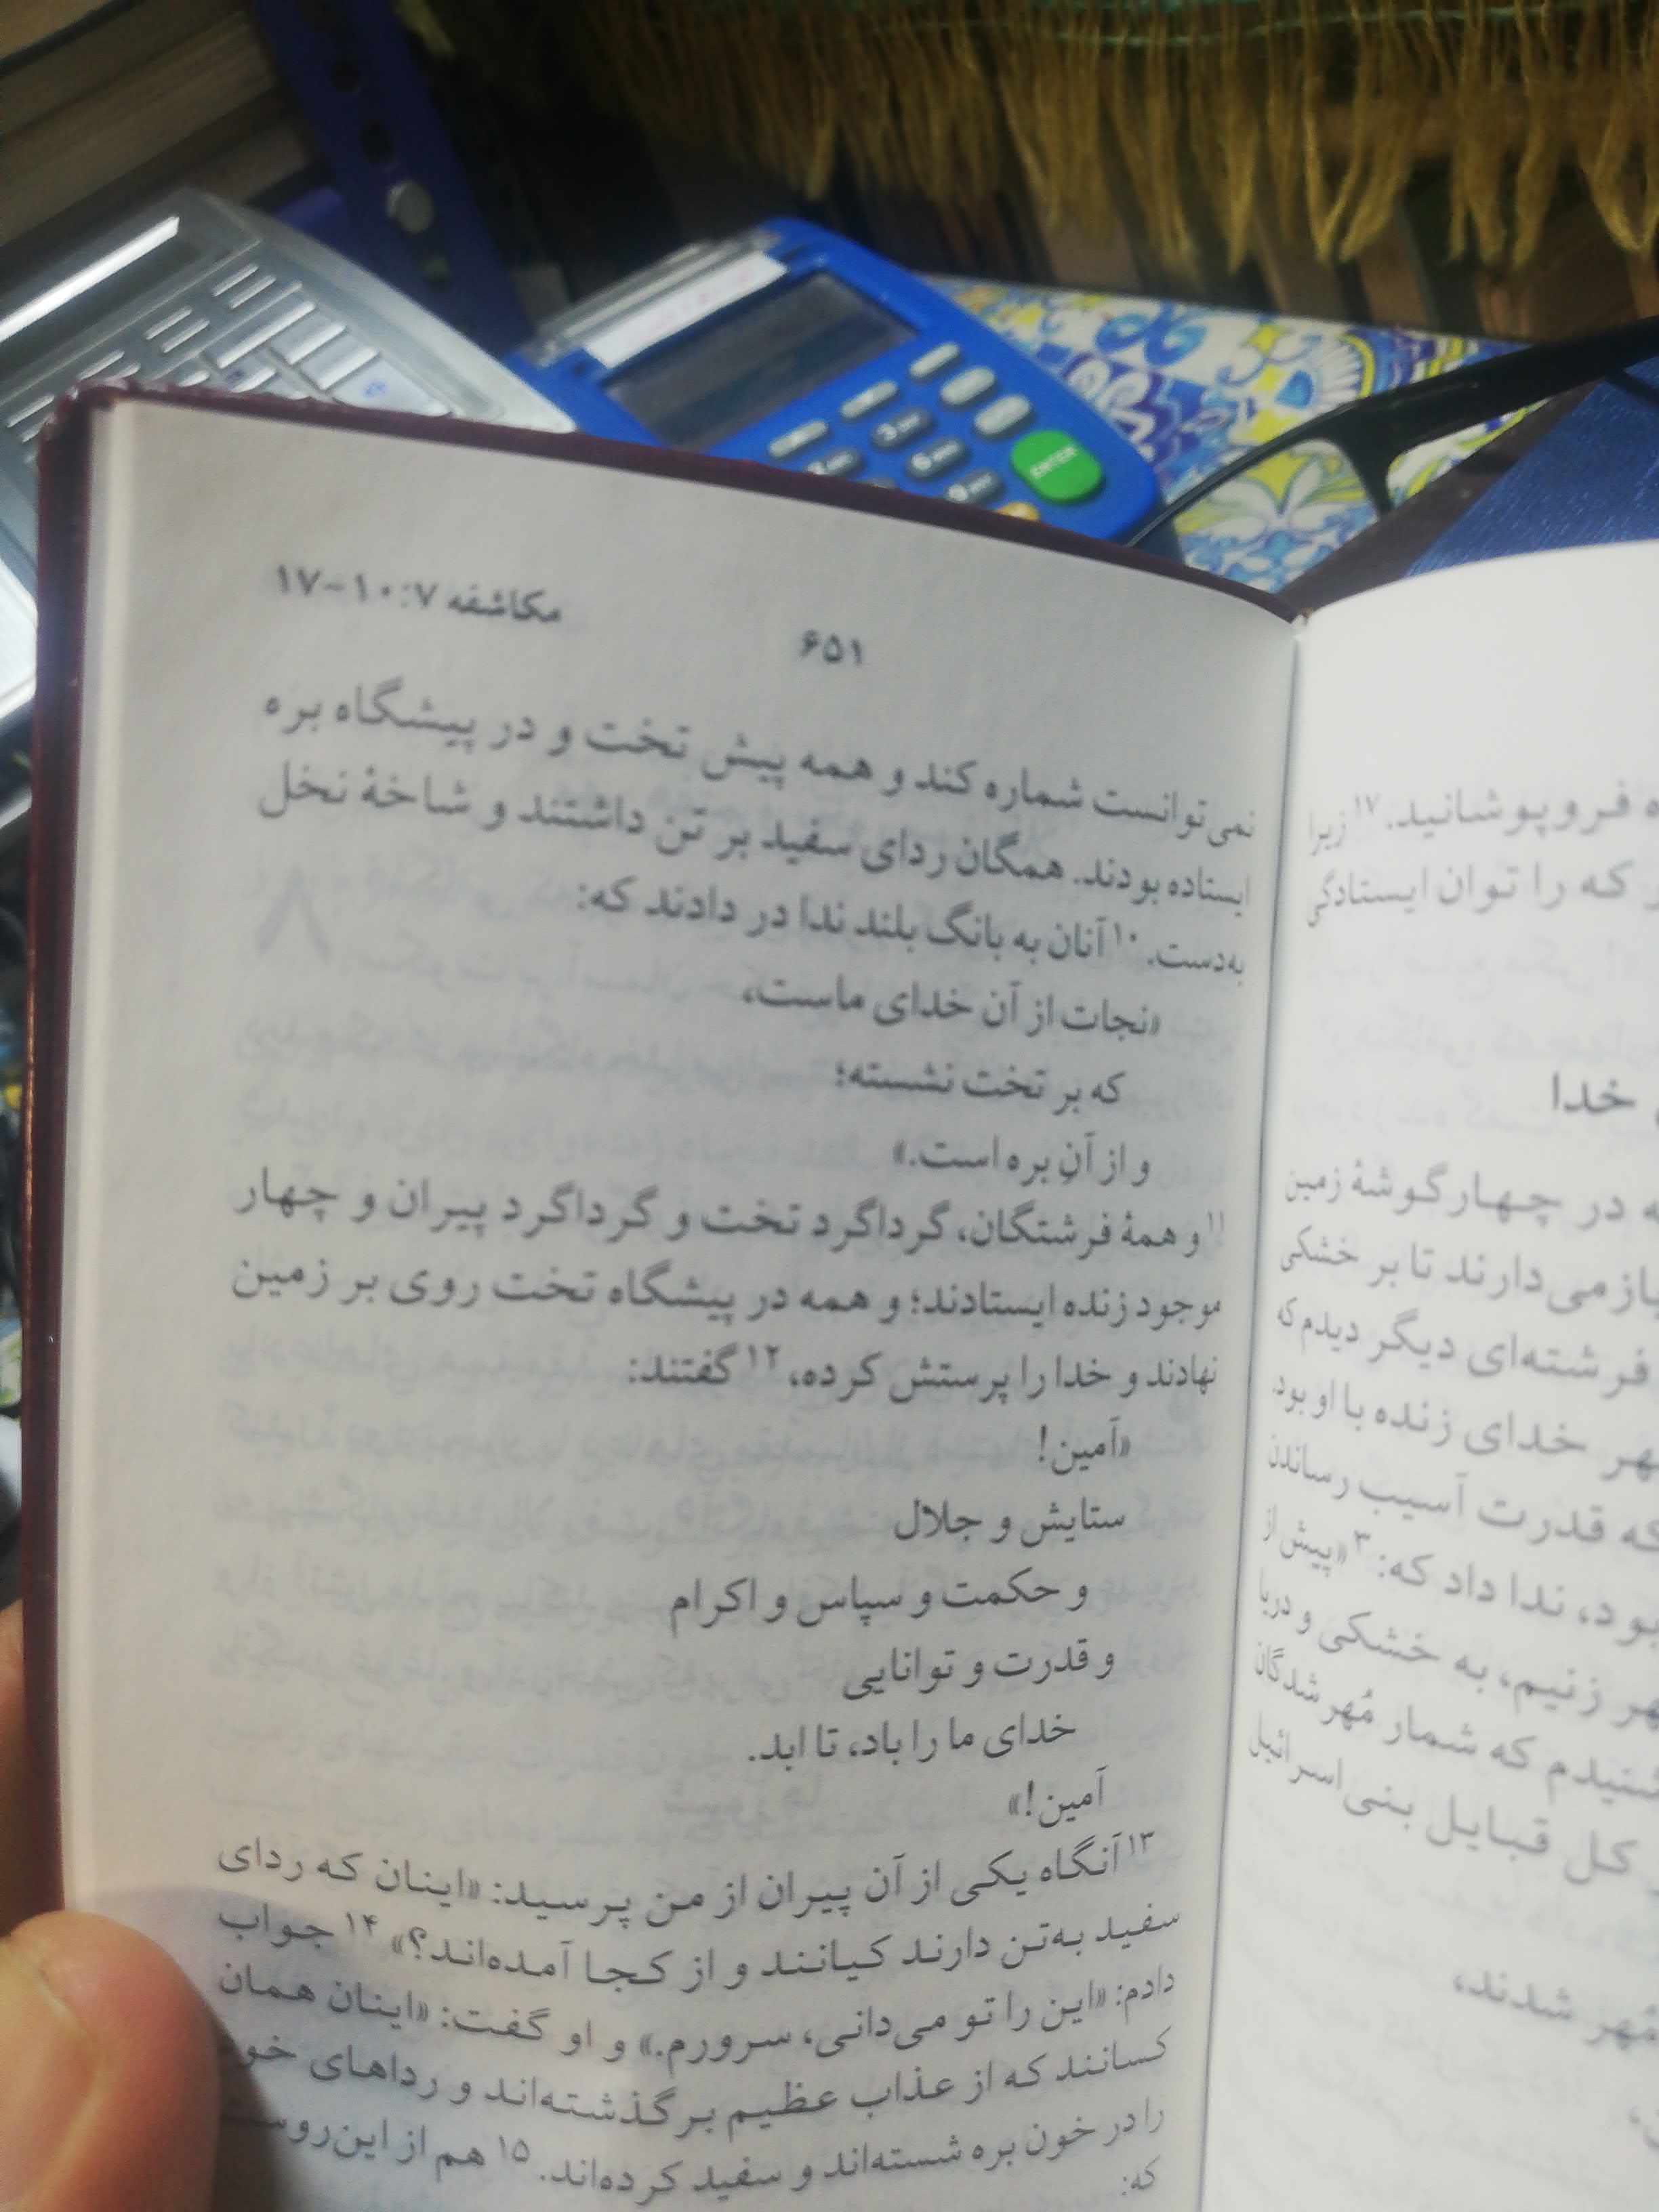 ENTER
مکاشفه ۷:‏۱۰-۱۷
۶۵۱
نمی‌توانست شماره کند و همه پیش تخت و در پیشگاه بره
ایستاده بودند. همگان ردای سفید بر تن داشتند و شاخهٔ نخل
به‌دست. ۱۰ آنان به بانگ بلند ندا در دادند که:
«نجات از آن خدای ماست،
که بر تخت نشسته؛
و از آنِ بره است.»
۱۱ و همهٔ فرشتگان، گرداگرد تخت و گرداگرد پیران و چهار
موجود زنده ایستادند؛ و همه در پیشگاه تخت روی بر زمین
نهادند و خدا را پرستش کرده، ۱۲ گفتند:
«آمین!
ستایش و جلال
و حکمت و سپاس و اکرام
و قدرت و توانایی
خدای ما را باد، تا ابد.
آمین!»
۱۳ آنگاه یکی از آن پیران از من پرسید: «اینان که ردای
سفید به‌تن دارند کیانند و از کجا آمده‌اند؟» ۱۴ جواب
دادم: «این را تو می‌دانی، سرورم.» و او گفت: «اینان همان
کسانند که از عذاب عظیم برگذشته‌اند و رداهای خود
را در خون بره شسته‌اند و سفید کرده‌اند. ۱۵ هم از این‌رو
که:
فروپوشانید. ۱۷ زیرا
که را توان ایستادگی
خدا
در چهارگوشهٔ زمین
بازمی‌دارند تا بر خشکی
فرشته‌ای دیگر دیدم که
خدای زنده با او بود
که قدرت آسیب رساندن
بود، ندا داد که: ۳ «پیش از
زنیم، به خشکی و دریا
شنیدم که شمار مُهرشدگان
کل قبایل بنی‌اسرائیل
مُهر شدند،